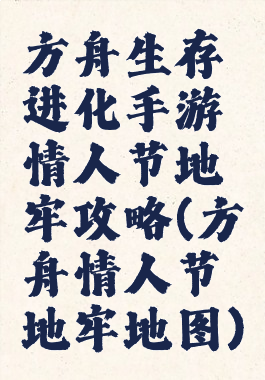 方舟生存
进化手游
情人节地
牢攻略(方
舟情人节
地牢地图)